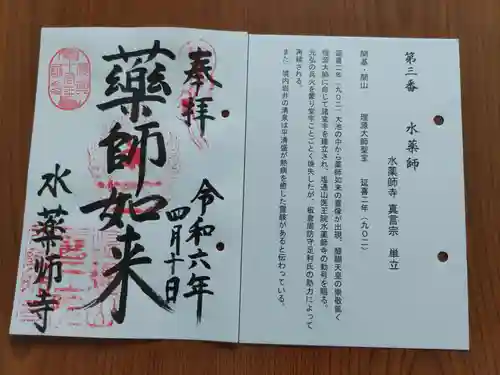 奉拝
藥師如来
令和六年
四月十日
水薬師寺
第三番　水薬師
水薬師寺 真言宗 単立
開基・開山　理源大師聖宝　延喜二年（九〇二）
延喜二年（九〇二）大池の中から薬師如来の霊像が出現、醍醐天皇の崇敬篤く
理源大師に命じて諸堂宇を建立され、塩通山医王院水薬師寺の勅号を賜る。
元弘の兵火を蒙り堂宇ことごとく焼失したが、板倉周防守足利氏の助力によって
再建される。
また、境内岩井の清泉は平清盛が熱病を癒した霊験があると伝わっている。